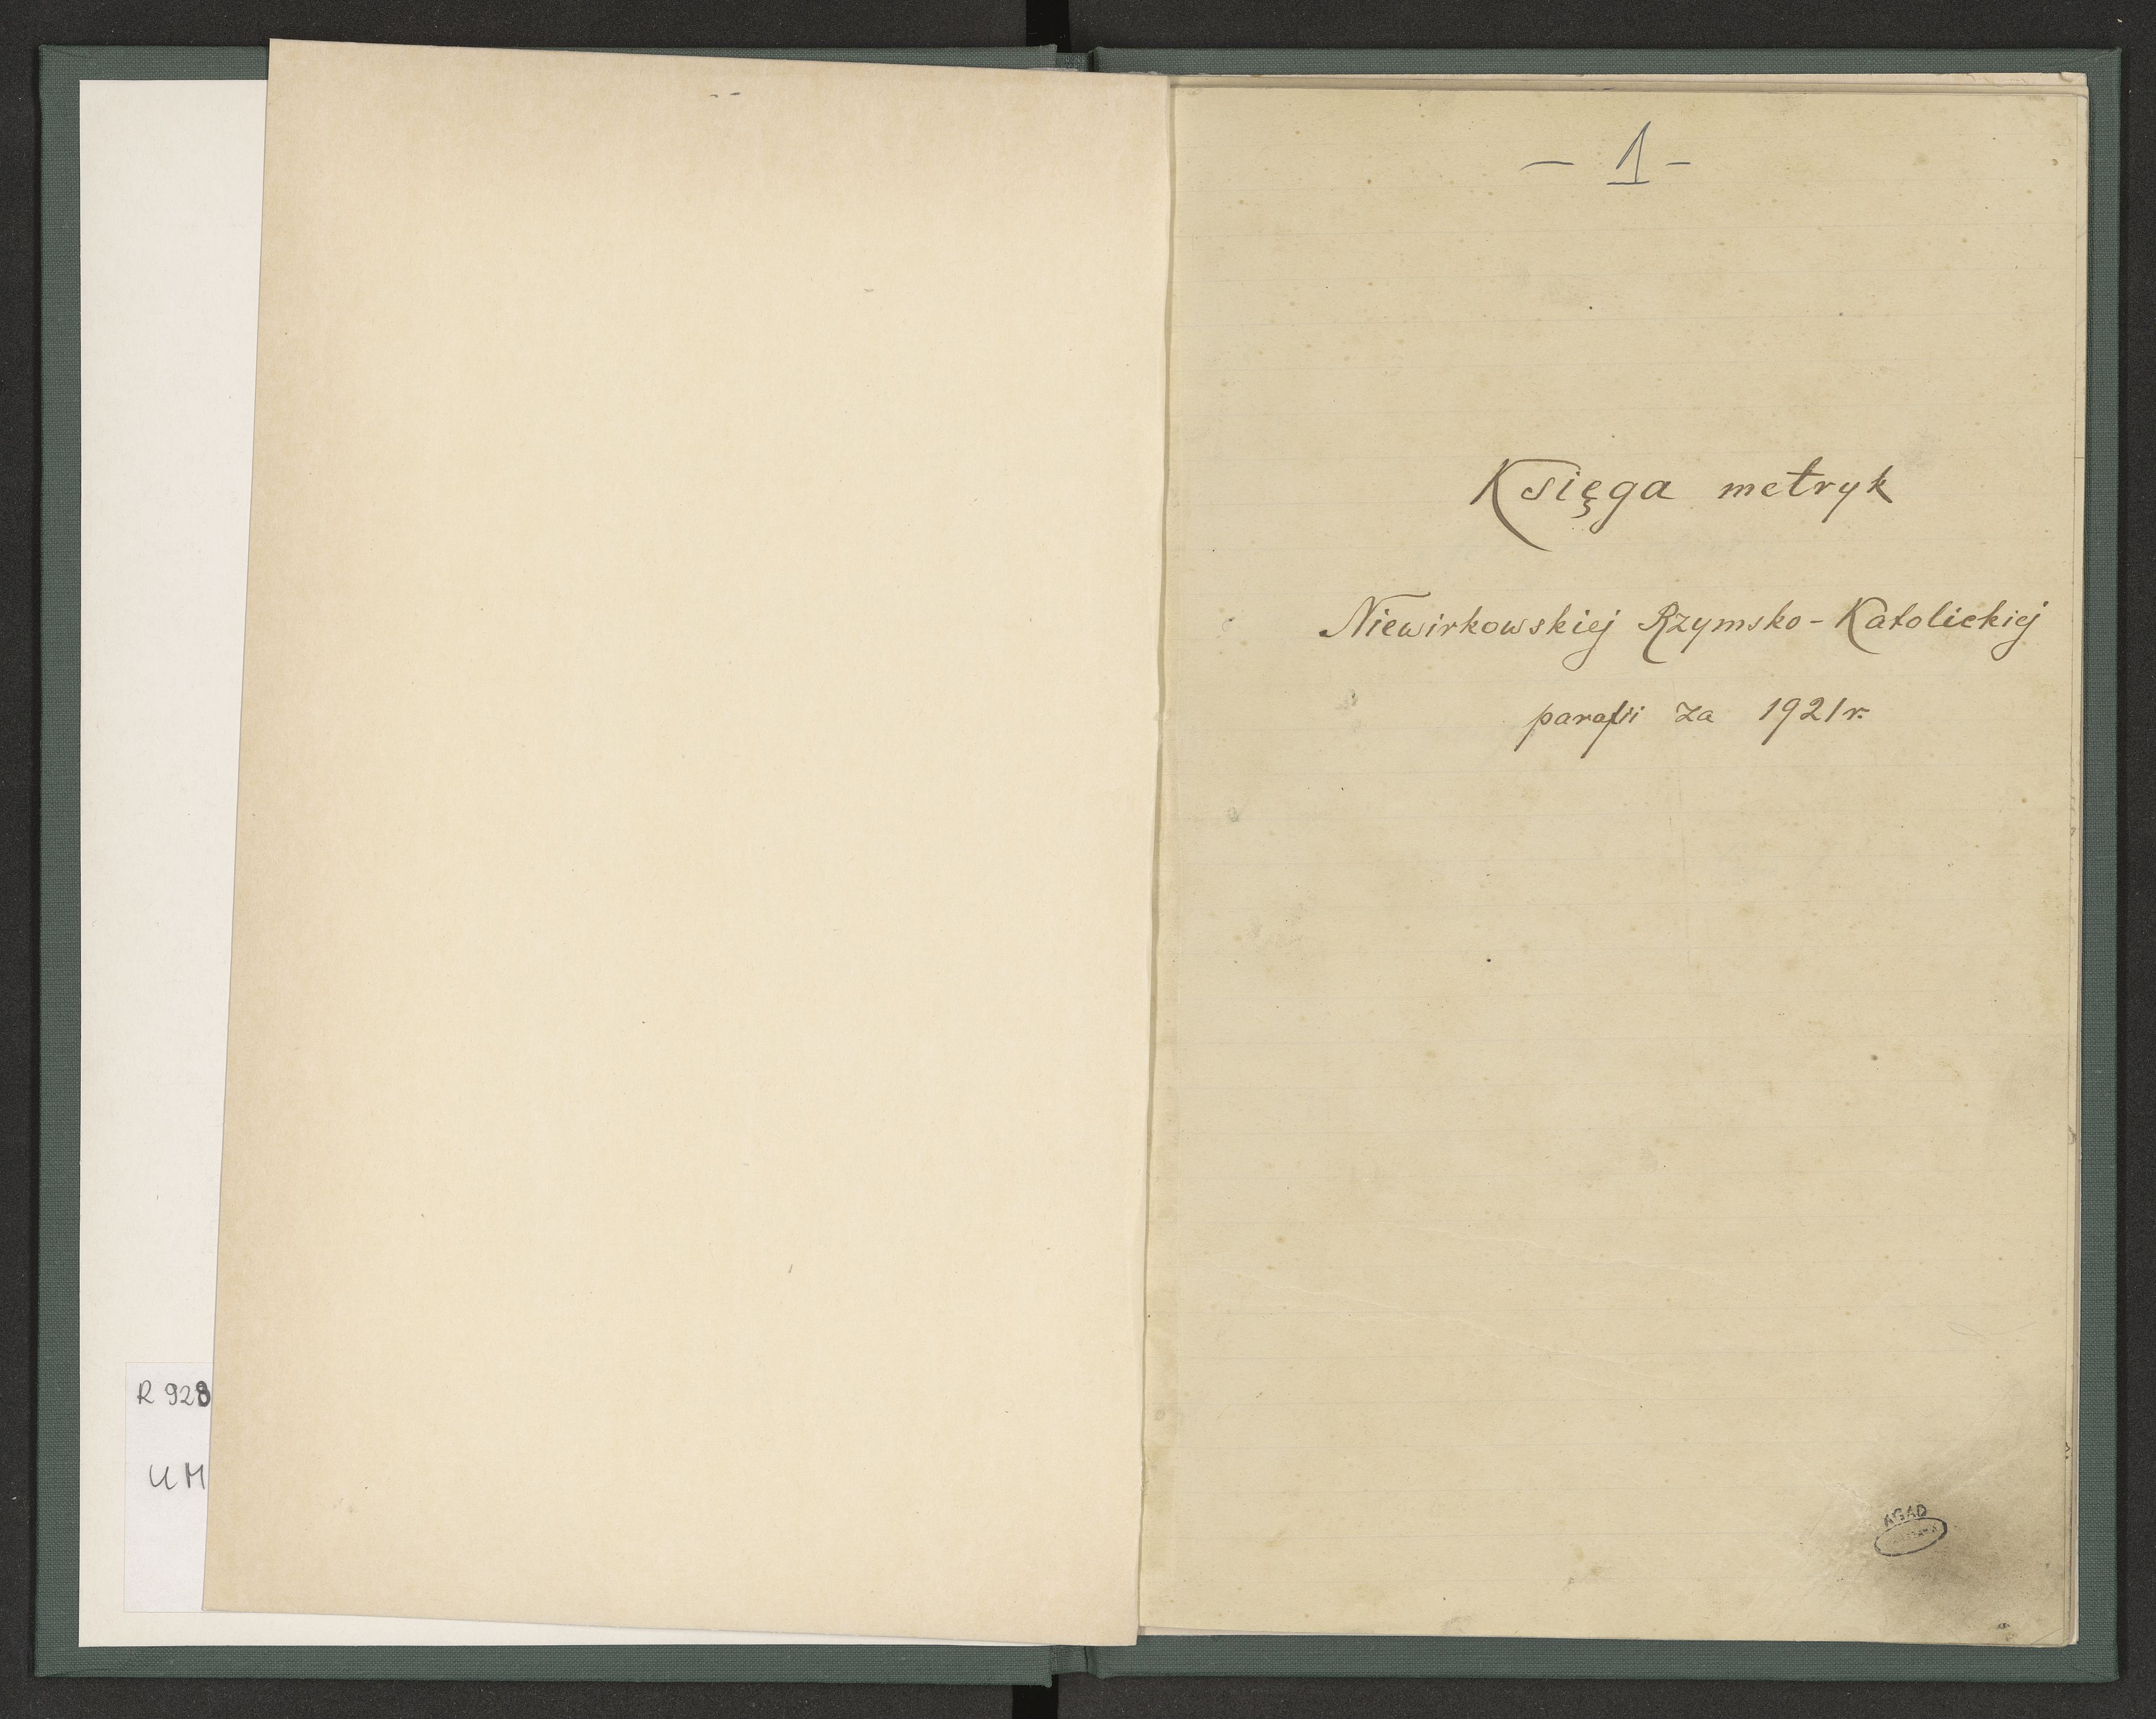 R 928
UM
- 1 -
Księga metryk
Niewirkowskiej Rzymsko-Katolickiej
parafii za 1921 r.
AGAD